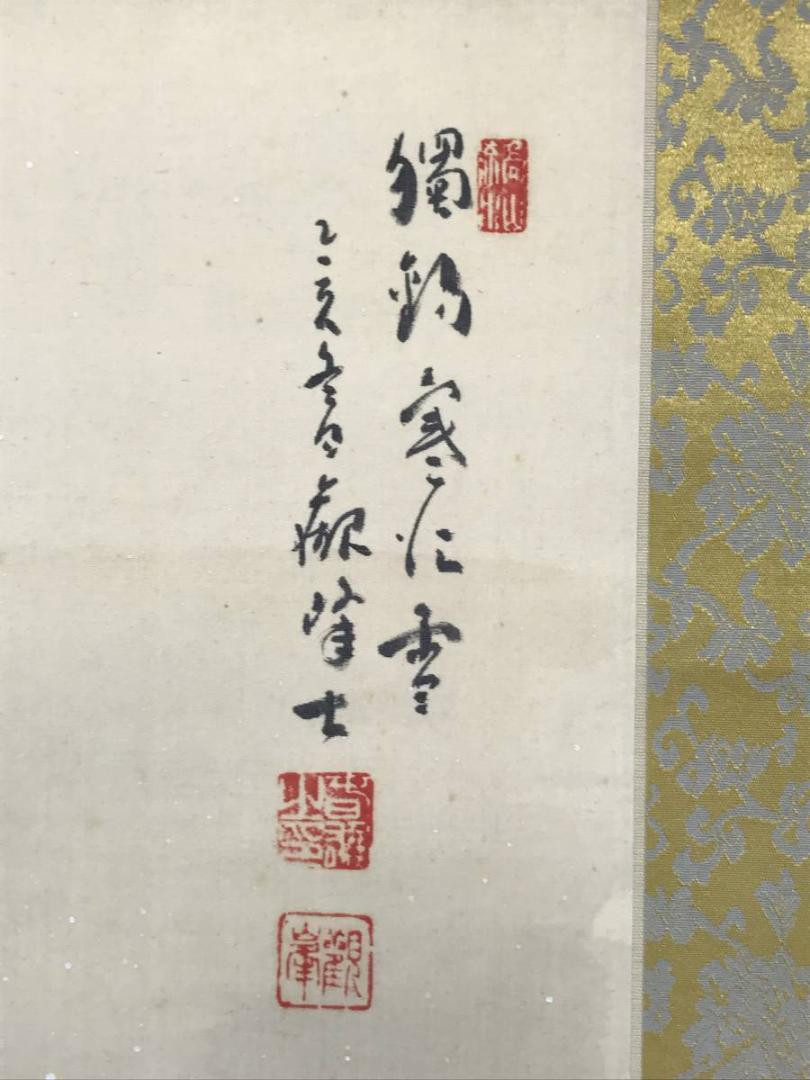 獨釣寒江雪
乙亥冬日觀峰士
觀峯